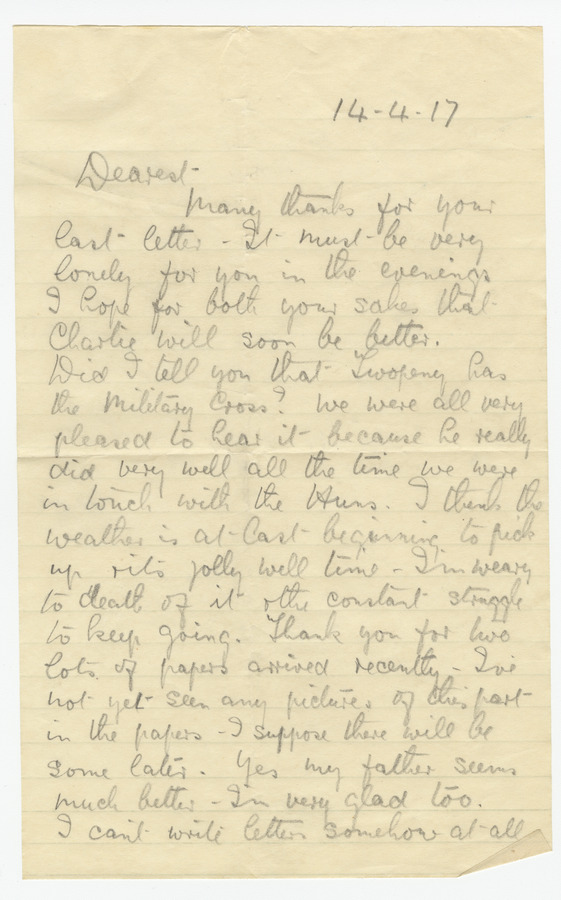 14-4-17
Dearest-
Many thanks for your
last letter - It must be very
lonely for you in the evenings
I hope for both your sakes that
Charlie will soon be better.
Did I tell you that Twopeny has
the Military Cross? We were all very
pleased to hear it because he really
did very well all the time we were
in touch with the Huns. I think the
weather is at last beginning to pick
up & its jolly well time - I'm weary
to death of it & the constant struggle
to keep going. Thank you for two
lots of papers arrived recently - I've
not yet seen any pictures of this part
in the papers - I suppose there will be
some later. Yes my father seems
much better - I'm very glad too.
I can't write letters somehow at all